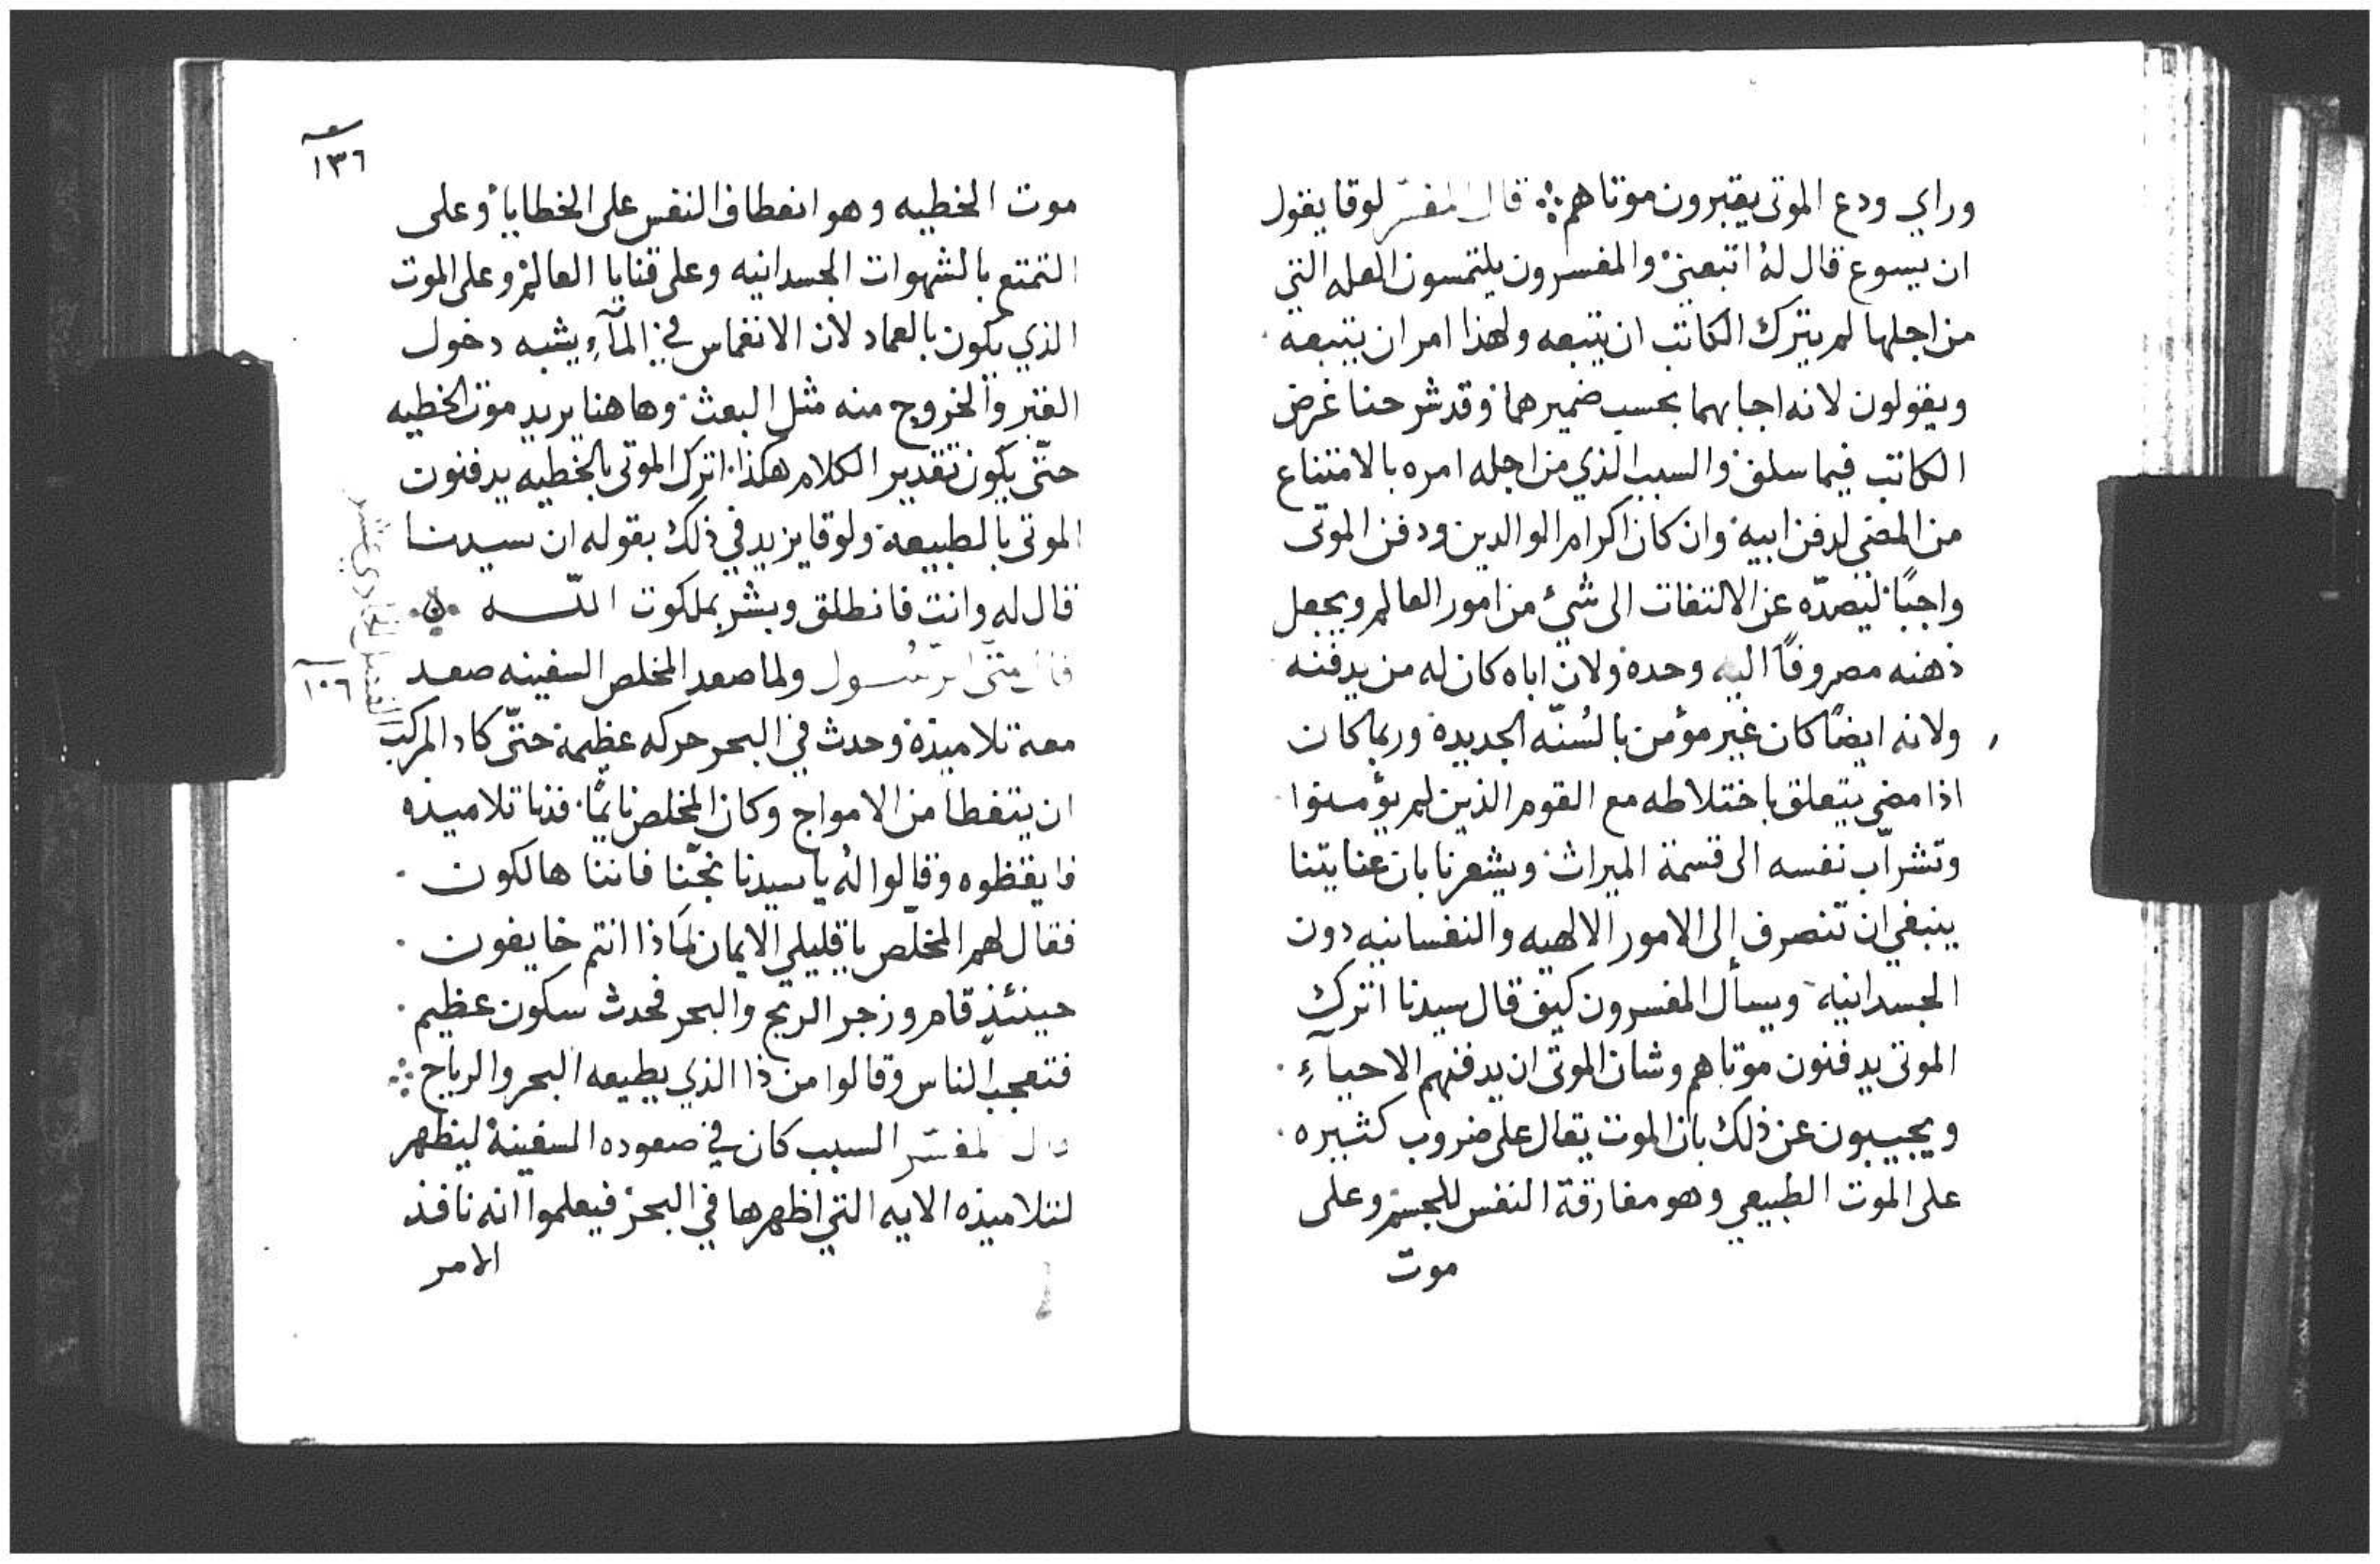 وراي ودع الموتى يقبرون موتاهم قال المفسّر لوقا يقول
ان يسوع قال لهُ اتبعني والمفسرون يلتمسون العله التي
من اجلها لم يترك الكاتب ان يتبعه ولهذا امر ان يتبعه
ويقولون لانه اجابهما بحسب ضميرهما وقد شرحنا غرض
الكاتب فيما سلف والسبب الذي من اجله امره بالامتناع
من المضي لدفن ابيه وان كان اكرام الوالدين ودفن الموتى
واجبًا ليصدّه عن الالتفات الى شيء من امور العالم ويجعل
ذهنه مصروفًا اليه وحده ولان اباه كان له من يدفنه
ولانه ايضًا كان غير مؤمن بالسُنّه الجديدة وربما كان
اذا مضى يتعلق باختلاطه مع القوم الذين لم يؤمنوا
وتشرآب نفسه الى قسمة الميراث ويشعرنا بان عنايتنا
ينبغي ان تنصرف إلى الامور الالهيه والنفسانيه دون
الجسدانيه ويسأل المفسرون كيف قال سيدنا اترك
الموتى يدفنون موتاهم وشان الموتى ان يدفنهم الاحيآءِ
ويجيبون عن ذلك بان الموت يقال على ضروب كثيره
على الموت الطبيعي وهو مفارقة النفس للجسم وعلى
موت
١٣٦
موت الخطيه وهو انعطاف النفس على الخطايا وعلى
التمتع بالشهوات الجسدانيه وعلى قنايا العالم وعلى الموت
الذي يكون بالعماد لان الانغماس في المآءِ يشبه دخول
القبر والخروج منه مثل البعث وهاهنا يريد موت الخطيه
حتّى يكون تقدير الكلام هكذا اترك الموتى بالخطيه يدفنون
الموتى بالطبيعه ولوقا يزيد في ذلك بقوله ان سيدنا
قال له وانت فانطلق وبشر بملكوت اللّه
قال متّى الرّسُول ولما صعد المخلص السفينه صعد
معه تلاميذه وحدث في البحر حركه عظيمة حتّى كاد المركب
ان يتغطا من الامواج وكان المخلص نايمًا فدنا تلاميذه
فايقظوه وقالوا لهُ يا سيدنا نجّنا فاننا هالكون
فقال لهم المخلّص يا قليلي الايمان لماذا انتم خايفون
حينئذٍ قام وزجر الريح والبحر فحدث سكون عظيم
فتعجب الناس وقالوا من ذا الذي يطيعه البحر والرياح
قال المفسّر السبب كان في صعوده السفينة ليظهر
لتلاميذه الايه التي اظهرها في البحر فيعلموا انه نافذ
الامر
الفصل الحادي عشر
١٠٦